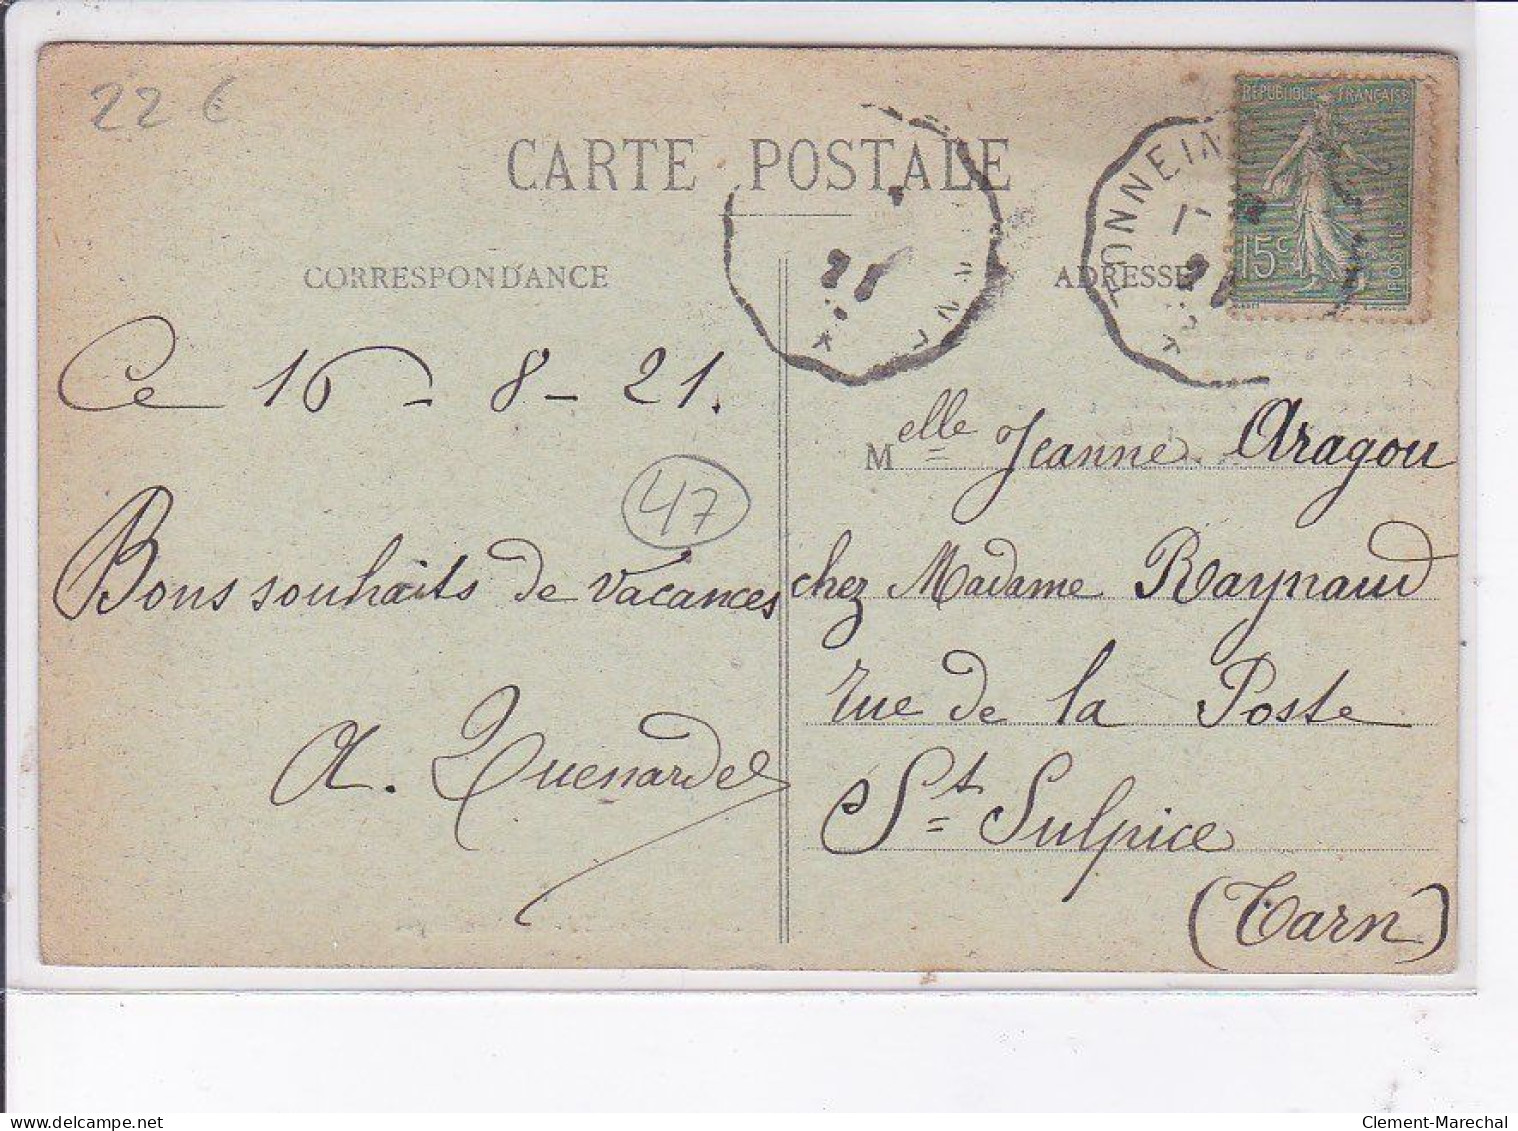 22 €
CARTE POSTALE
RÉPUBLIQUE FRANÇAISE
15c
POSTES
TONNEIN
21
CORRESPONDANCE
ADRESSE
Ce 16 - 8 - 21.
47
Bons souhaits de vacances
A. Quenardel
Melle Jeanne Aragou
chez Madame Raynaud
rue de la Poste
St Sulpice
(Tarn)
delcampe.net
Clement-Marechal